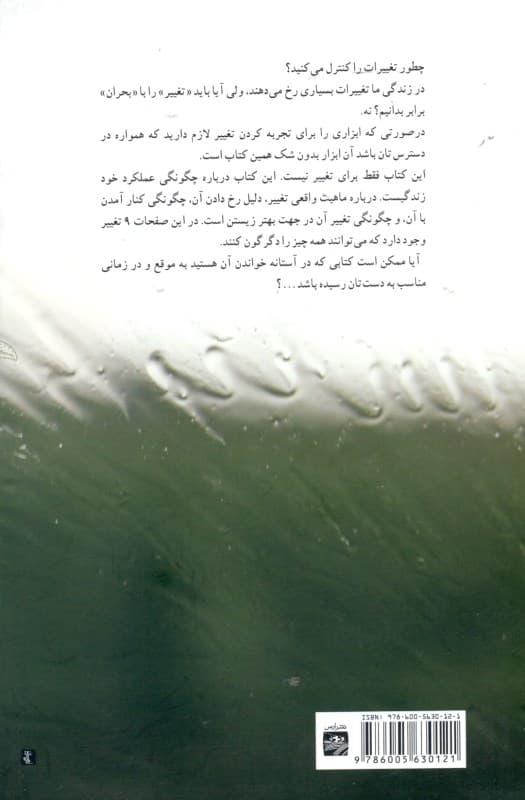 چطور تغییرات را کنترل می‌کنید؟
در زندگی ما تغییرات بسیاری رخ می‌دهند، ولی آیا باید «تغییر» را با «بحران»
برابر بدانیم؟ نه.
درصورتی که ابزاری را برای تجربه کردن تغییر لازم دارید که همواره در
دسترس تان باشد آن ابزار بدون شک همین کتاب است.
این کتاب فقط برای تغییر نیست. این کتاب درباره چگونگی عملکرد خود
زندگیست. درباره ماهیت واقعی تغییر، دلیل رخ دادن آن، چگونگی کنار آمدن
با آن، و چگونگی تغییر آن در جهت بهتر زیستن است. در این صفحات ۹ تغییر
وجود دارد که می‌توانند همه چیز را دگرگون کنند.
آیا ممکن است کتابی که در آستانه خواندن آن هستید به موقع و در زمانی
مناسب به دست‌تان رسیده باشد ...؟
ISBN: 978-600-5630-12-1
9 786005 630121